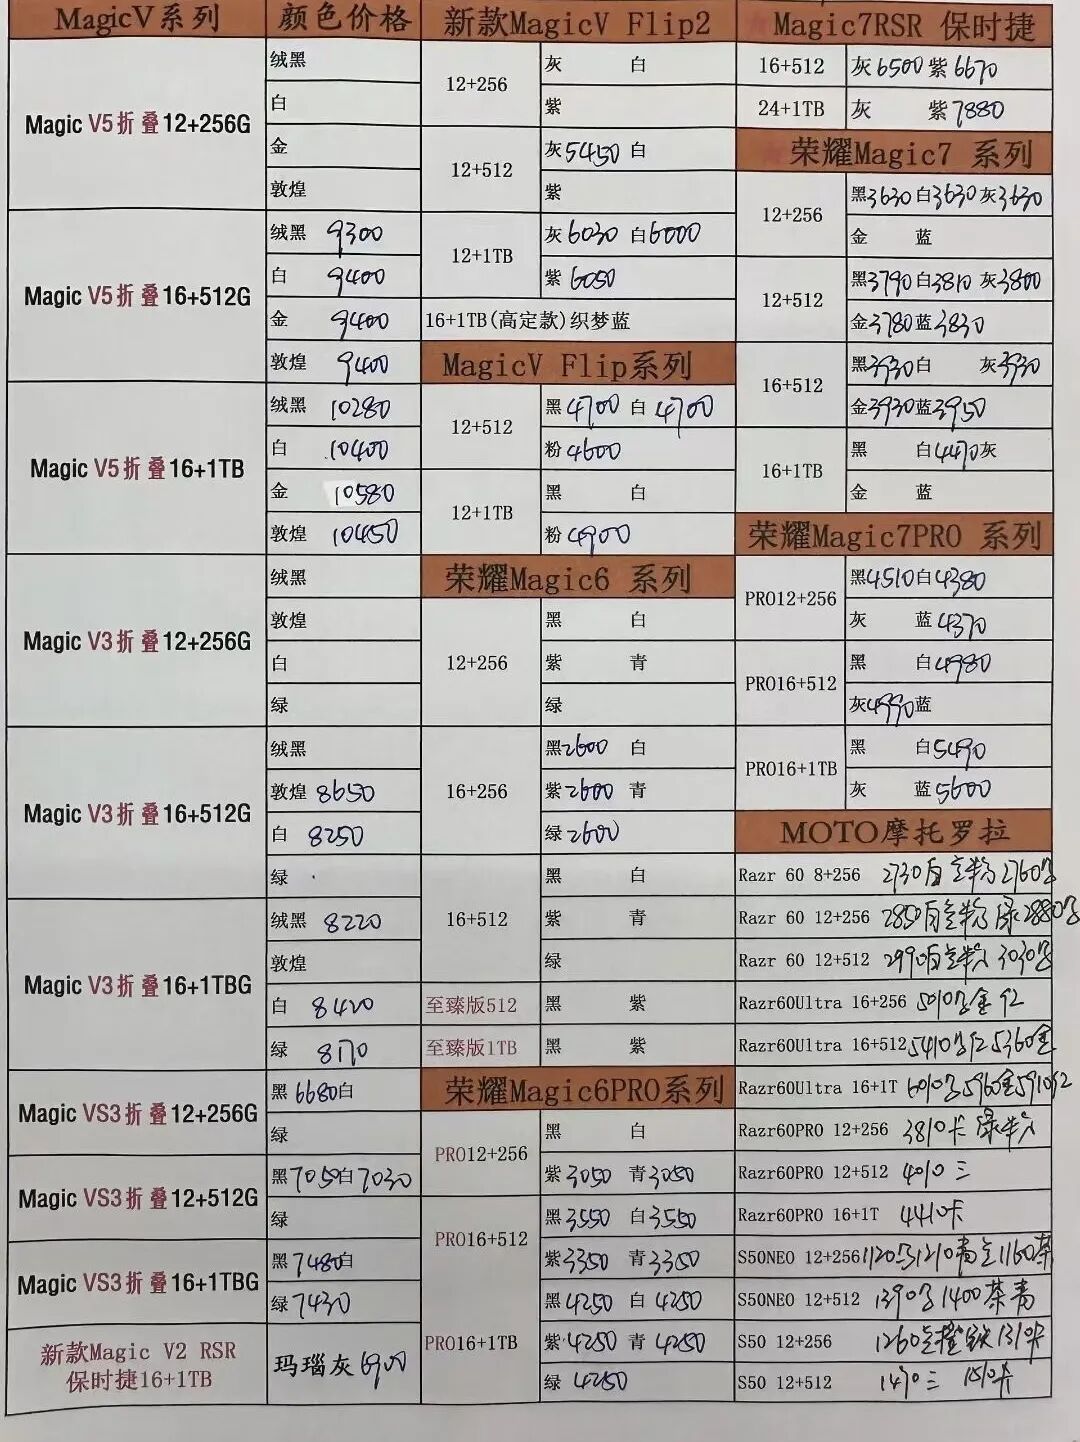 MagicV系列
颜色价格
Magic V5折叠12+256G
绒黑
白
金
敦煌
Magic V5折叠16+512G
绒黑 9300
白 9400
金 9400
敦煌 9400
Magic V5折叠16+1TB
绒黑 10280
白 10400
金 10580
敦煌 10450
Magic V3折叠12+256G
绒黑
敦煌
白
绿
Magic V3折叠16+512G
绒黑
敦煌 8650
白 8250
绿
Magic V3折叠16+1TBG
绒黑 8220
敦煌
白 8420
绿 8170
Magic VS3折叠12+256G
黑6680白
绿
Magic VS3折叠12+512G
黑7050白7030
绿
Magic VS3折叠16+1TBG
黑7480白
绿7430
新款Magic V2 RSR
保时捷16+1TB
玛瑙灰6900
新款MagicV Flip2
12+256
灰 白
紫
12+512
灰5450 白
紫
12+1TB
灰6030 白6000
紫6050
16+1TB(高定款)织梦蓝
MagicV Flip系列
12+512
黑4700 白4700
粉4600
12+1TB
黑 白
粉4900
荣耀Magic6 系列
12+256
黑 白
紫 青
绿
16+256
黑2600 白
紫2600 青
绿2600
16+512
黑 白
紫 青
绿
至臻版512 黑 紫
至臻版1TB 黑 紫
荣耀Magic6PRO系列
PRO12+256
黑 白
紫3050 青3050
PRO16+512
黑3550 白3550
紫3350 青3350
PRO16+1TB
黑4250 白4250
紫4250 青4250
绿 4250
Magic7RSR 保时捷
16+512 灰6500紫6670
24+1TB 灰 紫7880
荣耀Magic7 系列
12+256
黑3630白3630灰3630
金 蓝
12+512
黑3790白3810灰3800
金3780蓝3830
16+512
黑3930白 灰3930
金3930蓝3950
16+1TB
黑 白4470灰
金 蓝
荣耀Magic7PRO 系列
PRO12+256
黑4510白4380
灰 蓝4370
PRO16+512
黑 白4980
灰4990蓝
PRO16+1TB
黑 白5490
灰 蓝5600
MOTO摩托罗拉
Razr 60 8+256 2730 2760
Razr 60 12+256 2850 绿2880
Razr 60 12+512 2990 3030
Razr60Ultra 16+256 5010 金 红
Razr60Ultra 16+512 5410 红5360金
Razr60Ultra 16+1T 6010 5960金5910红
Razr60PRO 12+256 3810卡 绿
Razr60PRO 12+512 4010三
Razr60PRO 16+1T 4410卡
S50NEO 12+256 1120 1210青 1160茶
S50NEO 12+512 1390 1400茶青
S50 12+256 1260 1310卡
S50 12+512 1470三 1510卡